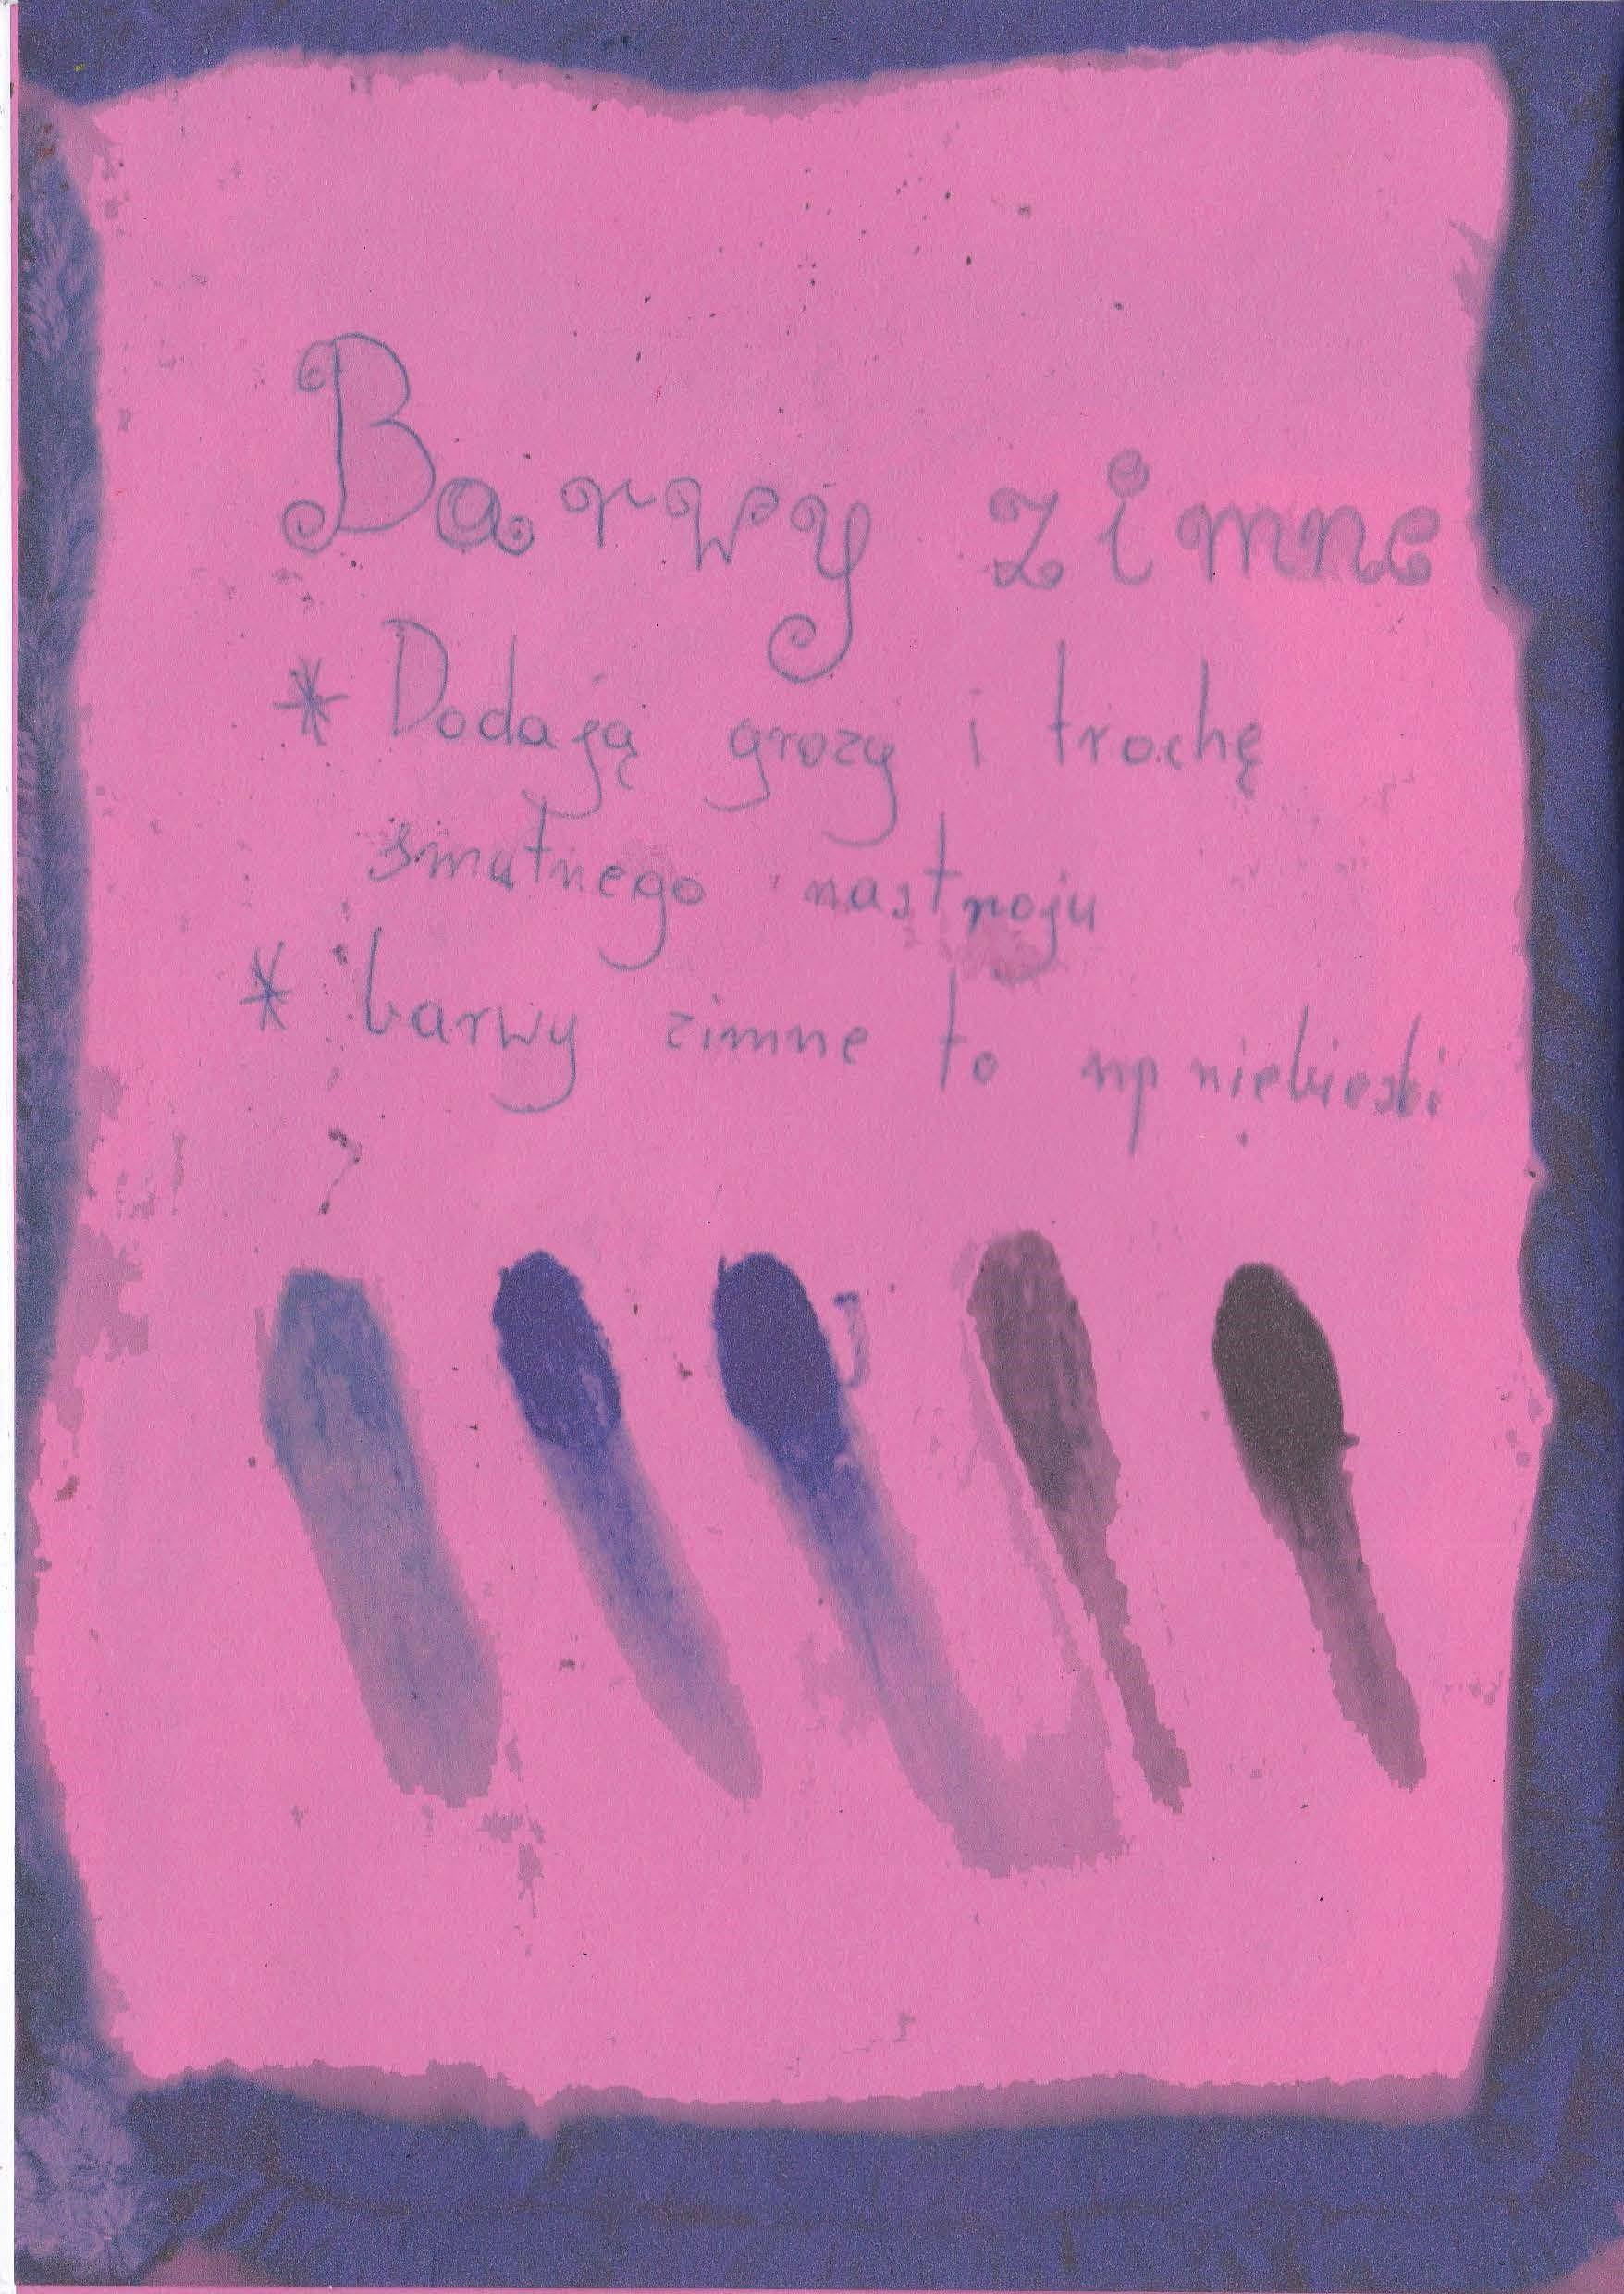 Barwy zimne
* Dodają grozy i trochę
smutnego nastroju
* barwy zimne to np niebieski